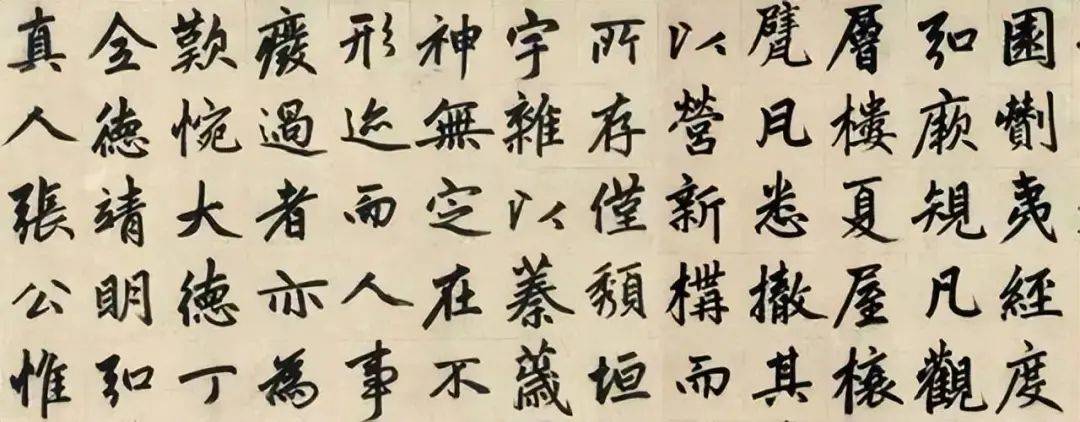 園劗夷經度
弘厥規凡觀
層樓夏屋榱
甓凡悉撤其
以營新構而
所存僅頹垣
宇雜以蓁薉
神無定在不
形迹而人事
廢過者亦為
歎惋大德丁
全德靖明弘
真人張公惟